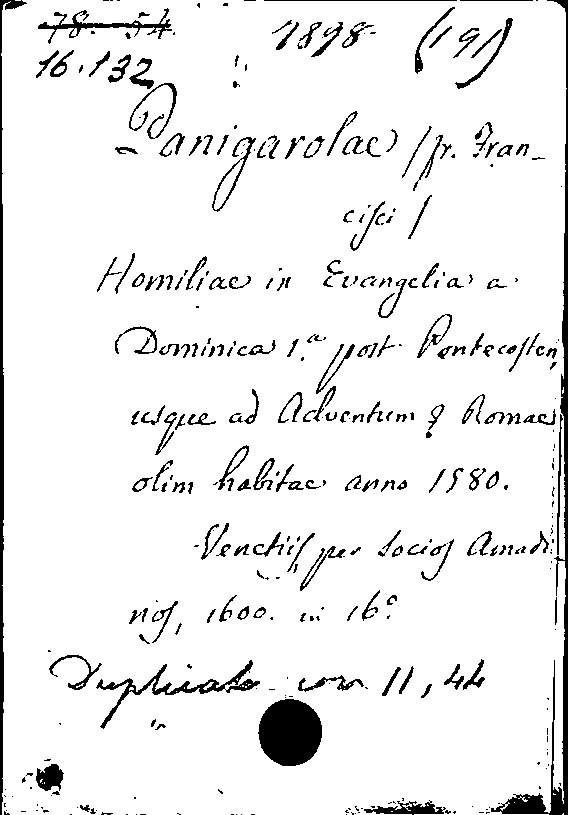 78. 54.
1898 (191)
16.132
Panigarolae /fr. Fran-
cisci /
Homiliae in Evangelia a
Dominica 1.a post Pentecosten,
usque ad Adventum Romae
olim habitae anno 1580.
Venetiis, per Socios Amadi
nos, 1600. in 16.o
Duplicato con 11,44